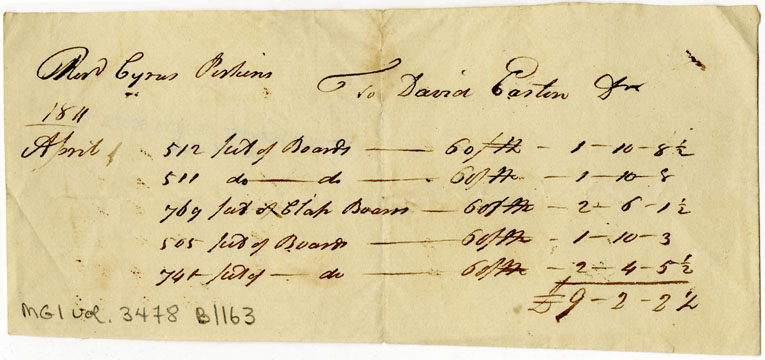 Revd Cyrus Perkins To David Easton Dr
1811
April 512 feet of Boards — 60/ M - 1 - 10 - 8½
511 do — do — 60/ M - 1 - 10 - 8
769 feet of Clap Boards — 60/ M - 2 - 6 - 1½
505 feet of Boards — 60/ M - 1 - 10 - 3
741 feet of — do — 60/ M - 2 - 4 - 5½
£ 9 - 2 - 2½
MG1 vol. 3478 B1163